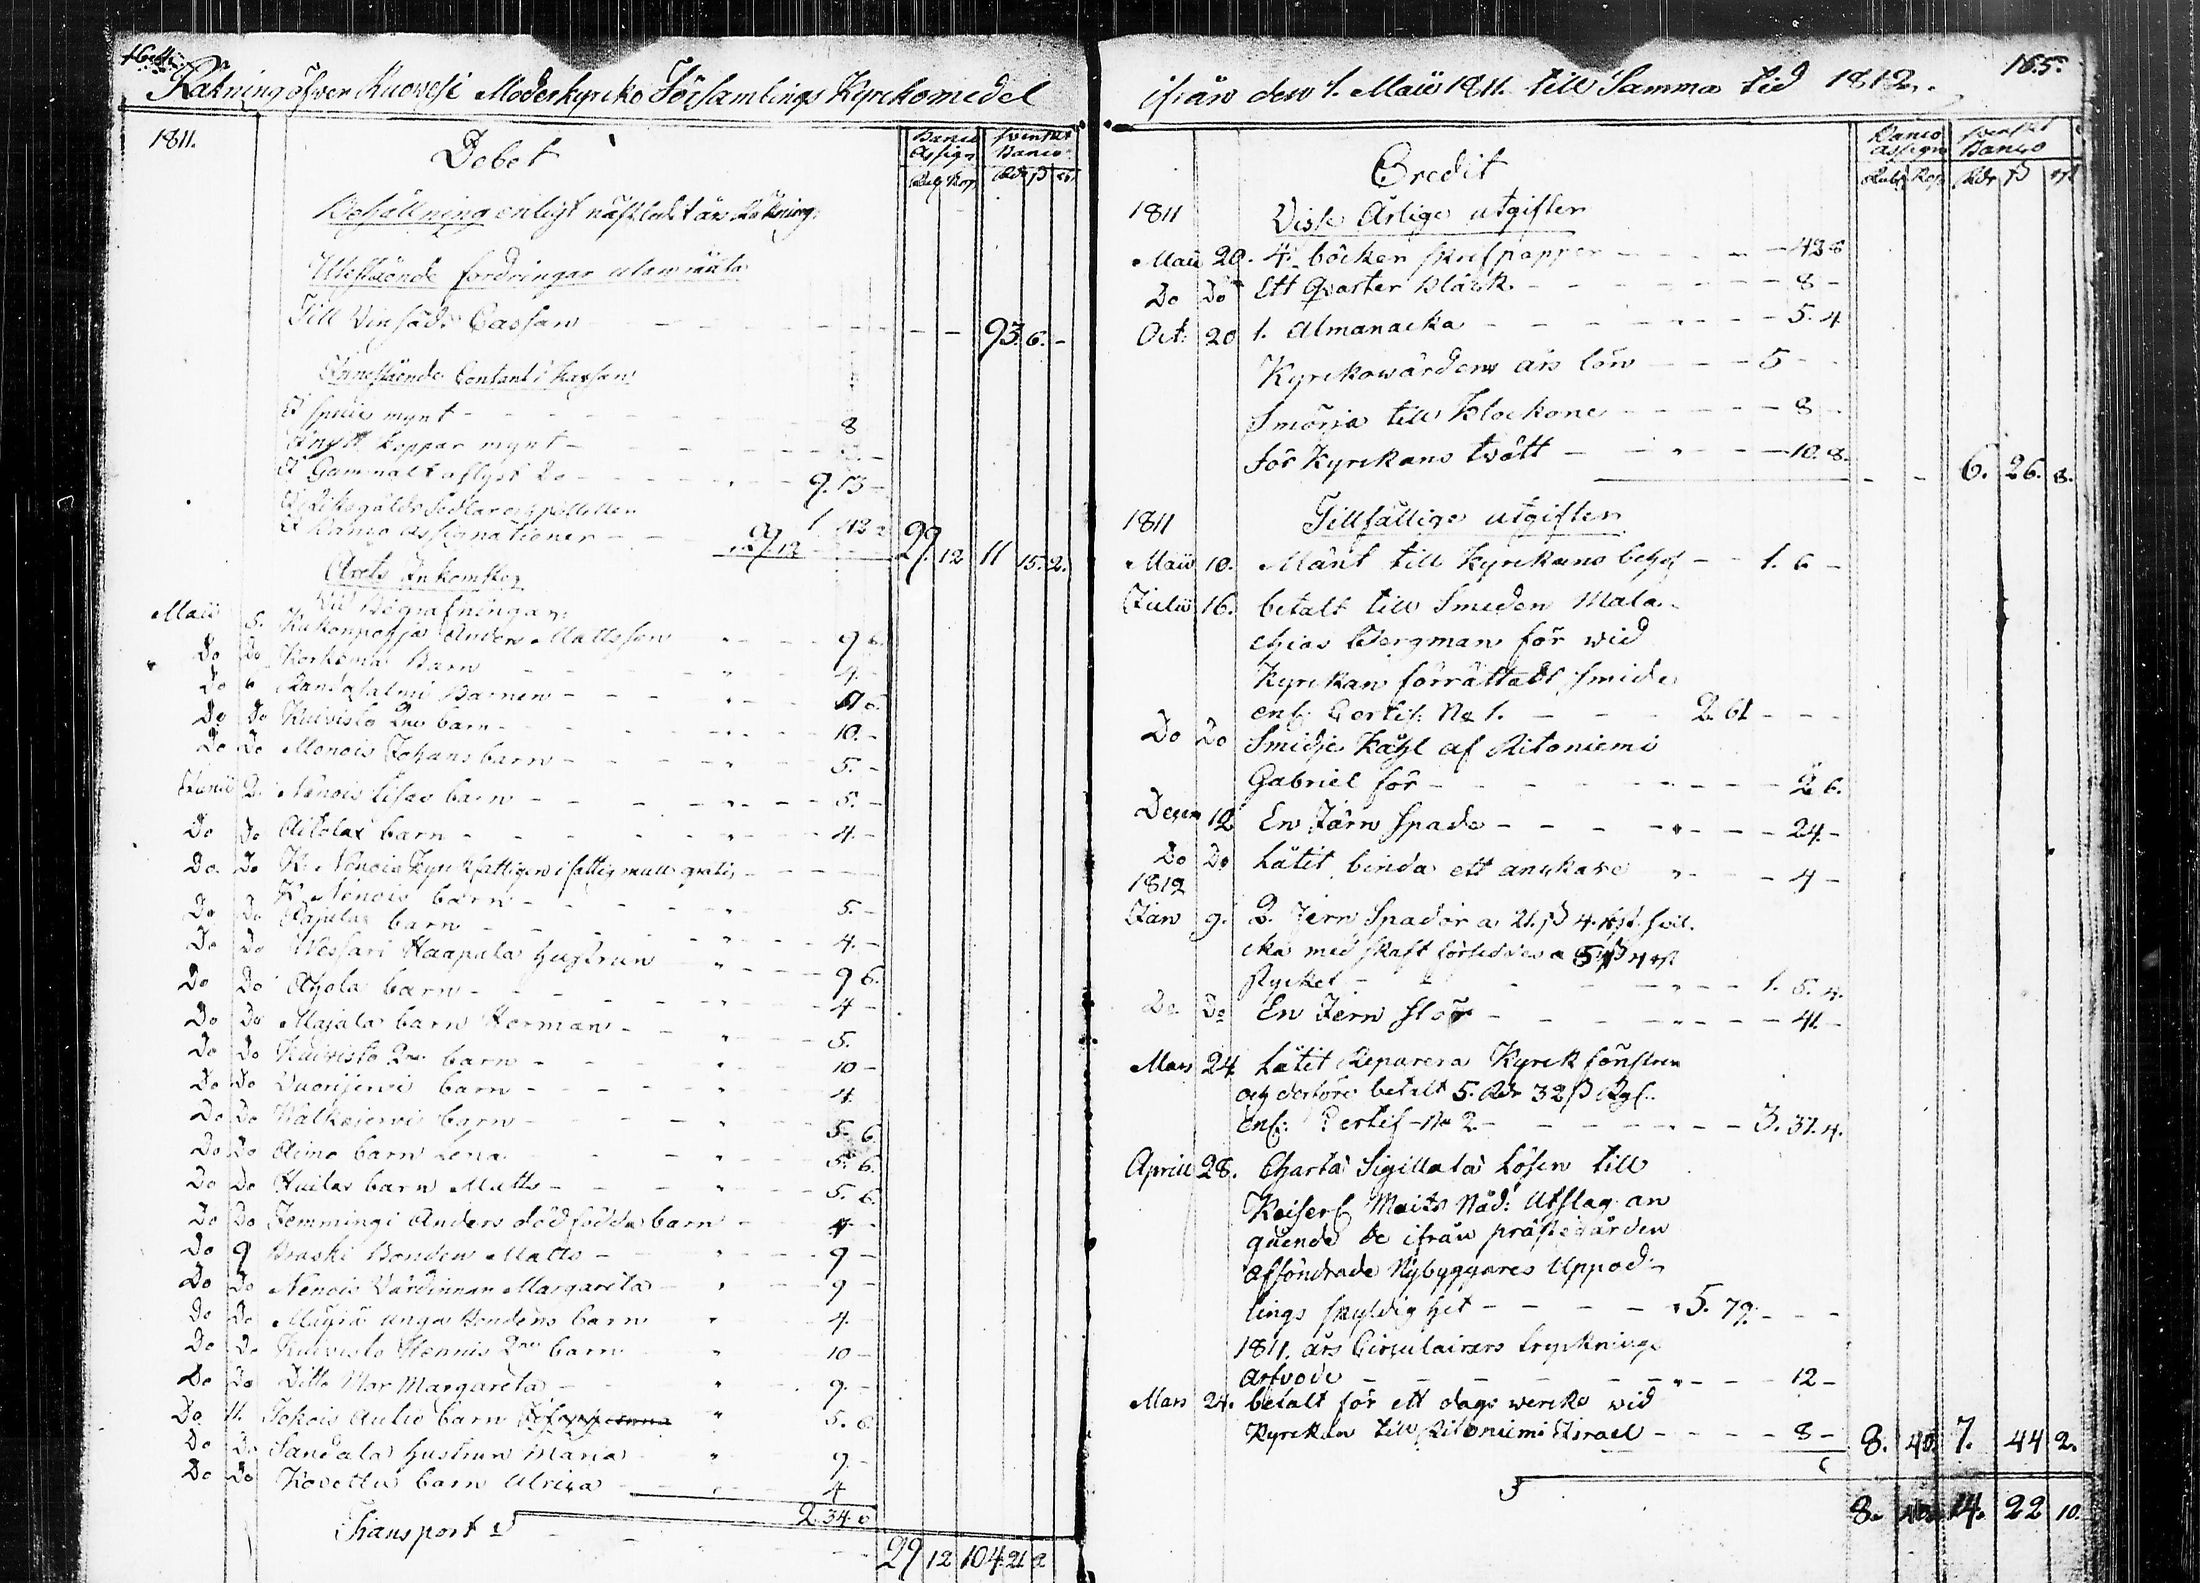 164.
Räkning öfver Ruovesi Moderkyrko Församlings Kyrkomedel
1811.
Debet
Banco Assign. Svenskt Banco
Rub. Kop. Rdr ß rst
Behållning enligt nästledit års Räkning
Utestående fordringar utan ränta
Till Vinsäds Cassan - - - 93. 6. -
Innestående Contant i Kassan
I specie mynt - - 8
I nytt koppar mynt - -
I Gammalt aflyst Do - - 9. 13 -
I Riksgälds Sedlar och polletter 1. 42 2
I Banco Assignationer - - 29. 12 29. 12 11 15. 2.
Årets Inkomster
Vid Begrafningar
Maii 5. Anders Mattsson 9
Do Do Korkema Barn 4. -
Do 6 Barnen - -
Do Do Kuivisto 2ne barn - 10. -
Do Do Monois Johans barn - 5. -
Junii 2. Nenois Lisas barn - - 5. -
Do Do barn - - 4 -
Do. Do K. Nenois Kyrk fattigen i fattig mull gratis - - -
K. Nenois barn - - 5. -
Do Do Rajalas barn - - 4. -
Do Do Wessari Haapala hustrun 9 6.
Do Do Ahola barn - - 4 -
Do Do Majala barn Herman - - 5.
Do Do Kuivisto 2ne barn - 10 -
Do Do Vuorijerwi barn - - 4.
Do Do Walkejerwi barn - 5. 6
Do Do Aimo barn Lena 5. 6.
Do Do Huilas barn Matts - - 5. 6.
Do Do Jemmingi Anders dödfödda barn 4 -
Do 9 Braski Bonden Matts - 9 -
Do Do Nenois Värdinnan Margareta 9 -
Do Do unga Bondens barn 4.
Do Do Kuivisto Hennis 2ne barn 10 -
Do Do Ditto Mor Margareta - 9. -
Do 11. Jokois Aulis barn 5. 6
Do Do Sandala Hustrun Maria 9. -
Do Do Kovettu barn Ulrica 4
2. 34. 6
Transport 29 12 104 21 2
165.
ifrån den 1. Maii 1811. till Samma tid 1812.
Credit
Banco assign. Svenskt Banco
Rub. Kop. Rdr ß rst
1811 Visse Årlige utgifter
Maii 20. 4. böcker skrifpapper - - 42 8
Do Do Ett Qvarter bläck. - - 8 -
Oct. 20 1. Almanacka - - 5. 4
Kyrkowärdens års lön - - 5 - -
Smörja till Klockone - - 8 -
För Kyrkans twätt - - 10. 8.
- - 6. 26. 8.
1811 Tillfällige utgifter
Maii 10. till Kyrkans behof - - 1. 6 -
Julii 16. betalt till Smeden Mala-
chias Bergman för wid
Kyrkan förrättadt smide
enl. Certif: No 1. - - - 2. 61 - - -
Do Do Smidje Kåhl af Ritoniemi
Gabriel för - - 2 6.
Decem 12 En Järn Spade - - 24 -
Do Do Låtit binda ett - 4 -
1812
Jan 9. 2. Jern Spador a 21. ß 4. rst. hvil-
cka med skaft a 5 ß 4 rst
stycket - - 1. 5. 4.
Do Do En Jern stör - - 41. -
Mars 24 Låtit Reparera Kyrk fönstren
och derföre betalt 5. Rdr 32 ß Rgl.
enl: Certif - No 2 - - 3. 37. 4.
Aprill 28. Charta Sigillata Lösen till
Keiserl Maits Nåd: Utslag an
gående de ifrån prästegården
afsöndrade Nybyggares Uppod-
lings skyldighet - - 5. 79. - - -
1811. års Circulairers trycknings
Arfvode - - 12 -
Mars 24. betalt för ett dags werke wid
Kyrkan till Ritoniemi Israel - - 8 -
8. 40. 7. 44 2.
8. 40. 14. 22 10.